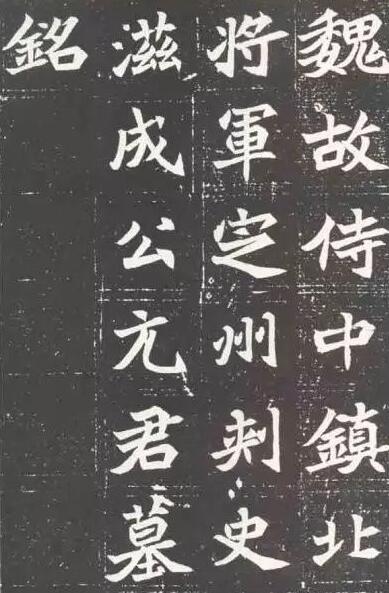 魏故侍中鎮北
將軍定州刺史
滋成公元君墓
銘